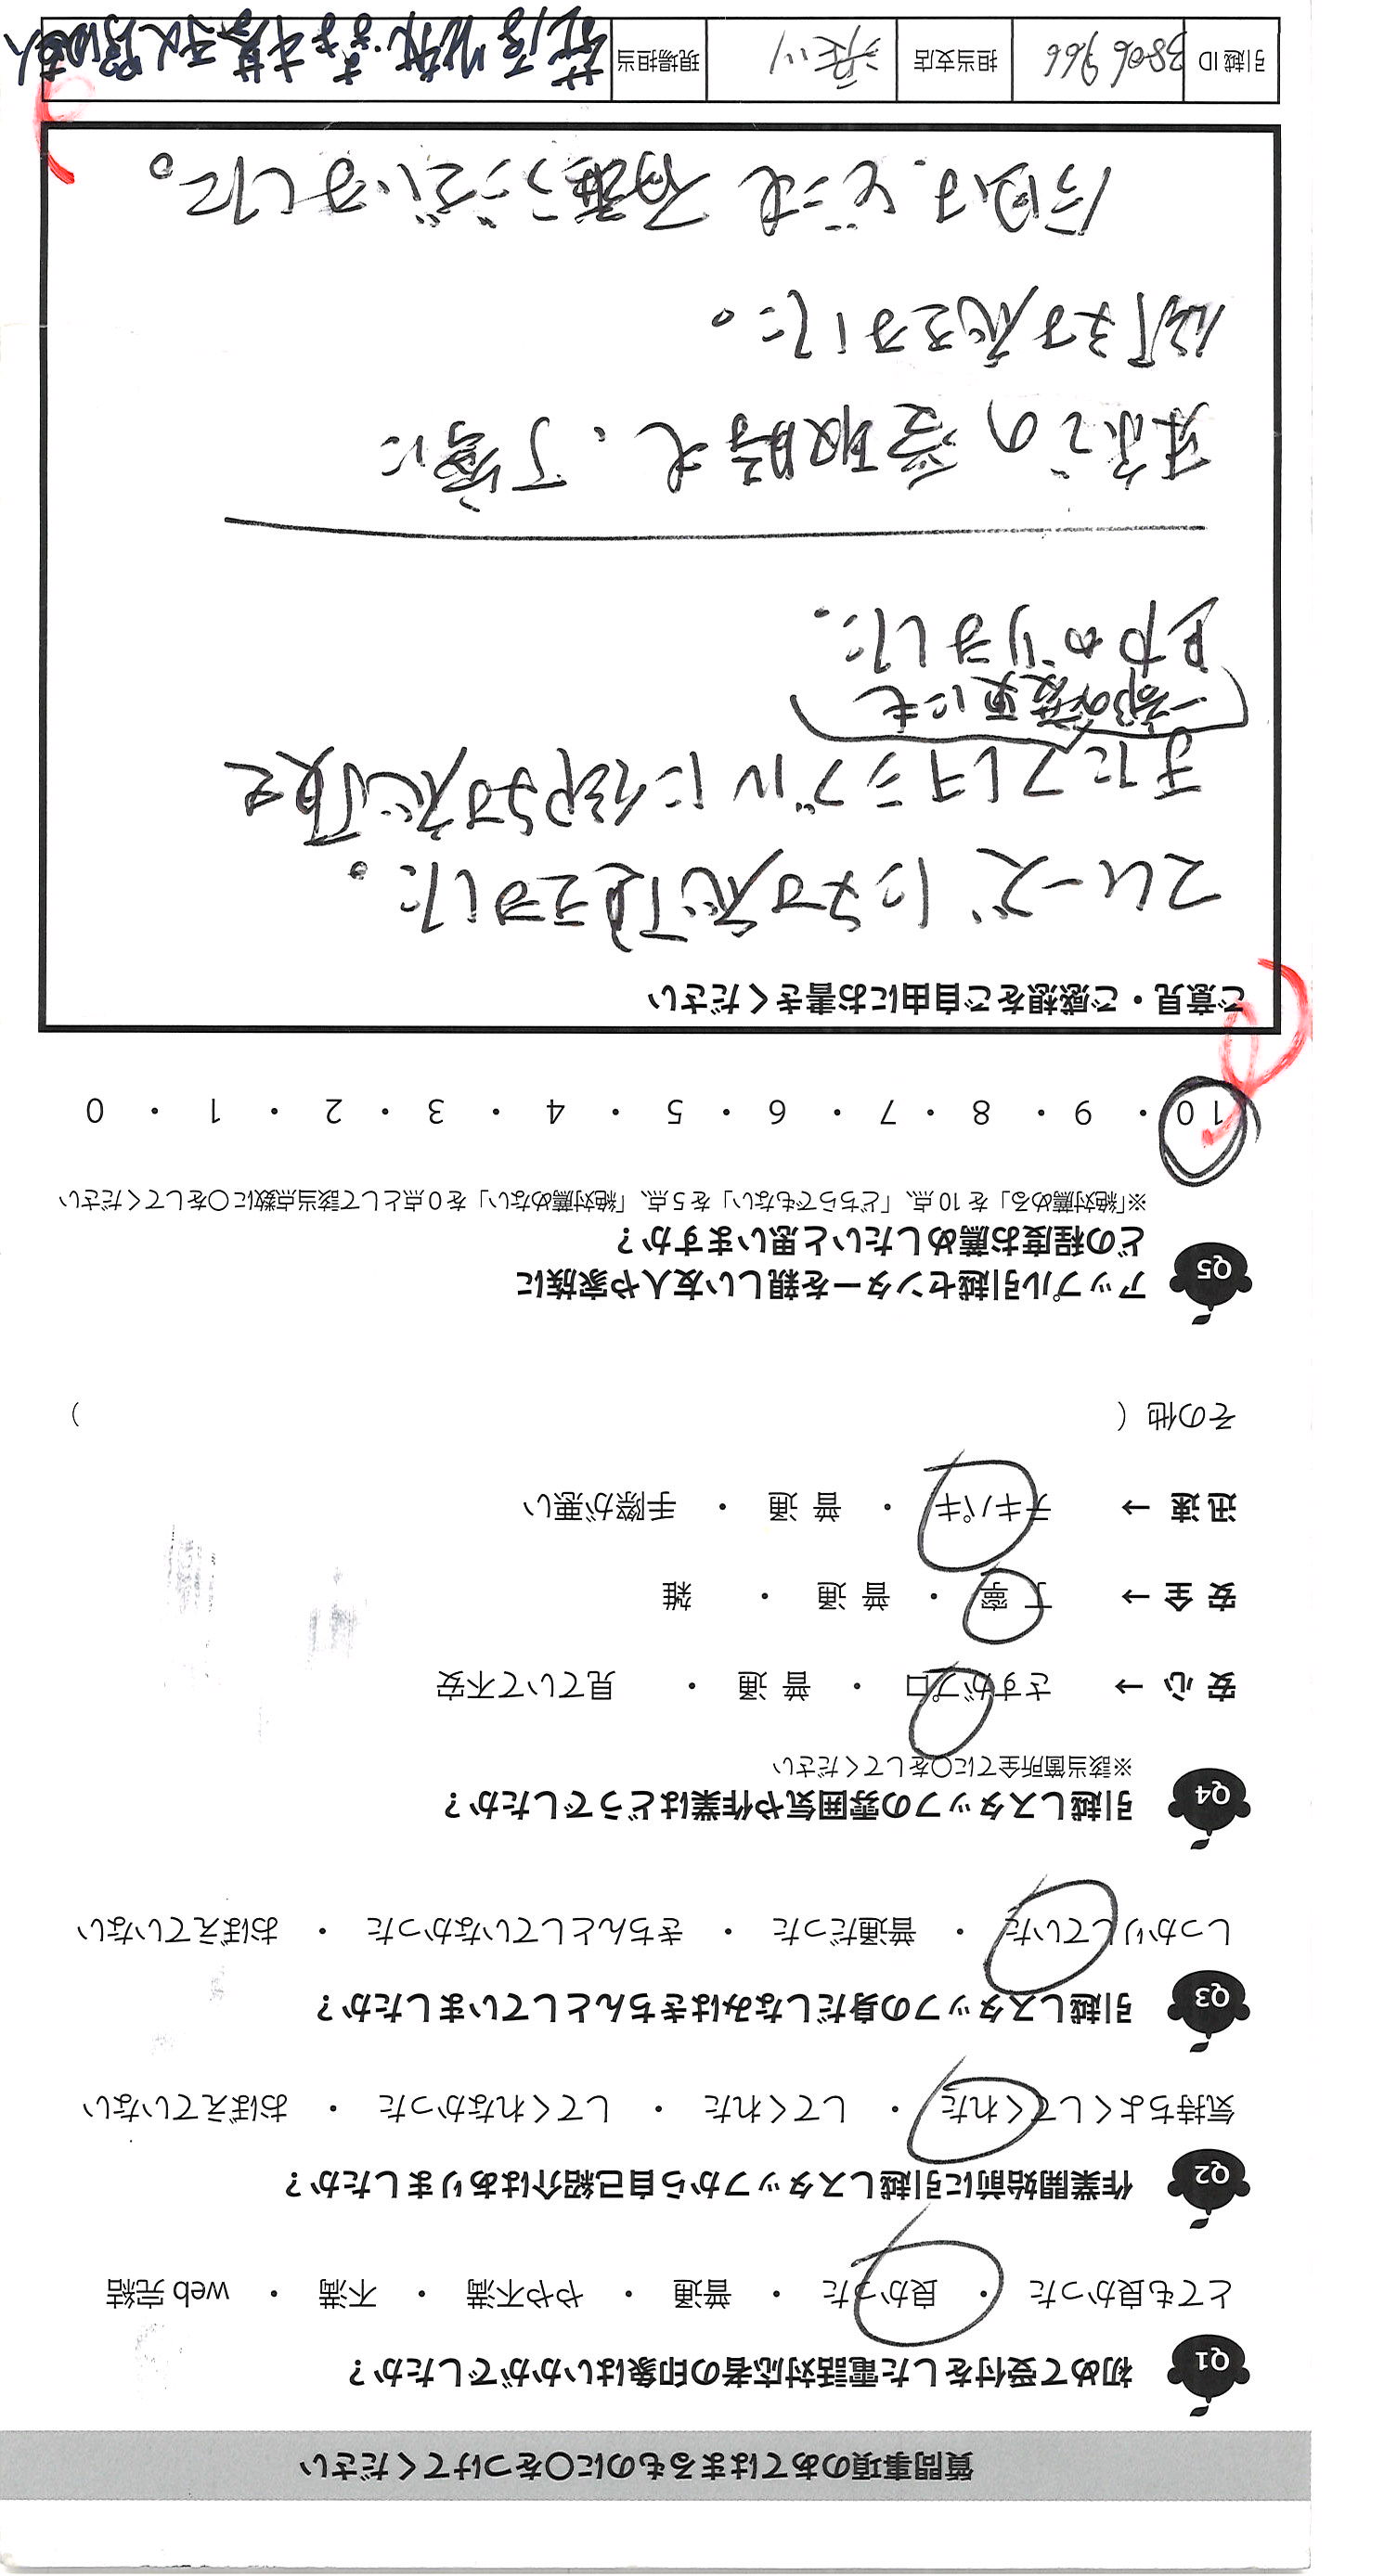 質問事項のあてはまるものに〇をつけてください
Q1 初めて受付をした電話対応者の印象はいかがでしたか？
とても良かった ・ 良かった ・ 普通 ・ やや不満 ・ 不満 ・ web 完結
Q2 作業開始前に引越しスタッフから自己紹介はありましたか？
気持ちよくしてくれた ・ してくれた ・ してくれなかった ・ おぼえていない
Q3 引越しスタッフの身だしなみはきちんとしていましたか？
しっかりしていた ・ 普通だった ・ きちんとしていなかった ・ おぼえていない
Q4 引越しスタッフの雰囲気や作業はどうでしたか？
※該当箇所全てに〇をしてください
安心 → さすがプロ ・ 普通 ・ 見ていて不安
安全 → 丁寧 ・ 普通 ・ 雑
迅速 → テキパキ ・ 普通 ・ 手際が悪い
その他（ ）
Q5 アップル引越センターを親しい友人や家族に
どの程度お薦めしたいと思いますか？
※「絶対薦める」を 10 点、「どちらでもない」を 5 点、「絶対薦めない」を 0 点として該当点数に〇をしてください
10 ・ 9 ・ 8 ・ 7 ・ 6 ・ 5 ・ 4 ・ 3 ・ 2 ・ 1 ・ 0
ご意見・ご感想をご自由にお書きください
スムーズに対応頂きました。
またフレキシブルに対応頂き
一部変更にも
助かりました。
東京での受取時も、丁寧に
対応頂きました。
今回は、どうも有難うございました。
引越 ID 3806966 担当支店 現場担当